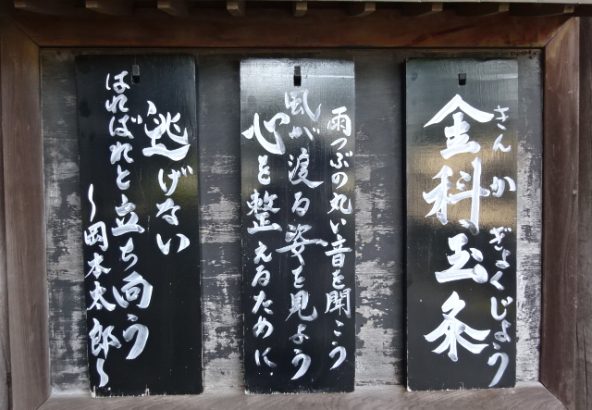 金科玉条
きんかぎょくじょう
雨つぶの丸い音を聞こう
風が渡る姿を見よう
心を整えるために
逃げない
はればれと立ち向う
〜岡本太郎〜